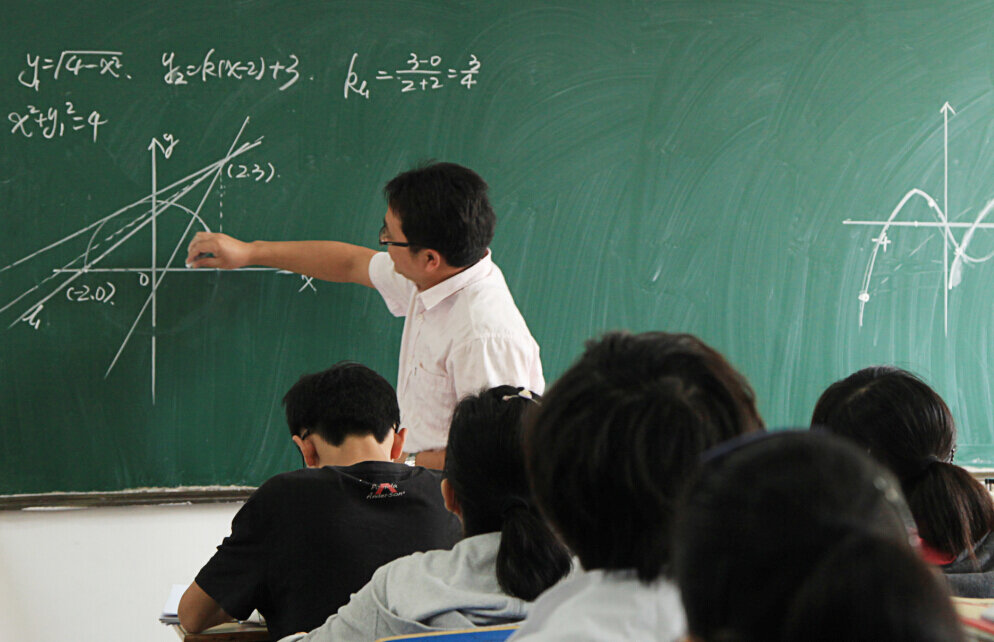 y₁=√(4-x²). y₂=k(x-2)+3. k₁=(3-0)/(2+2)=3/4
x²+y₁²=4
y
(2.3).
0
x
(-2.0)
l₁